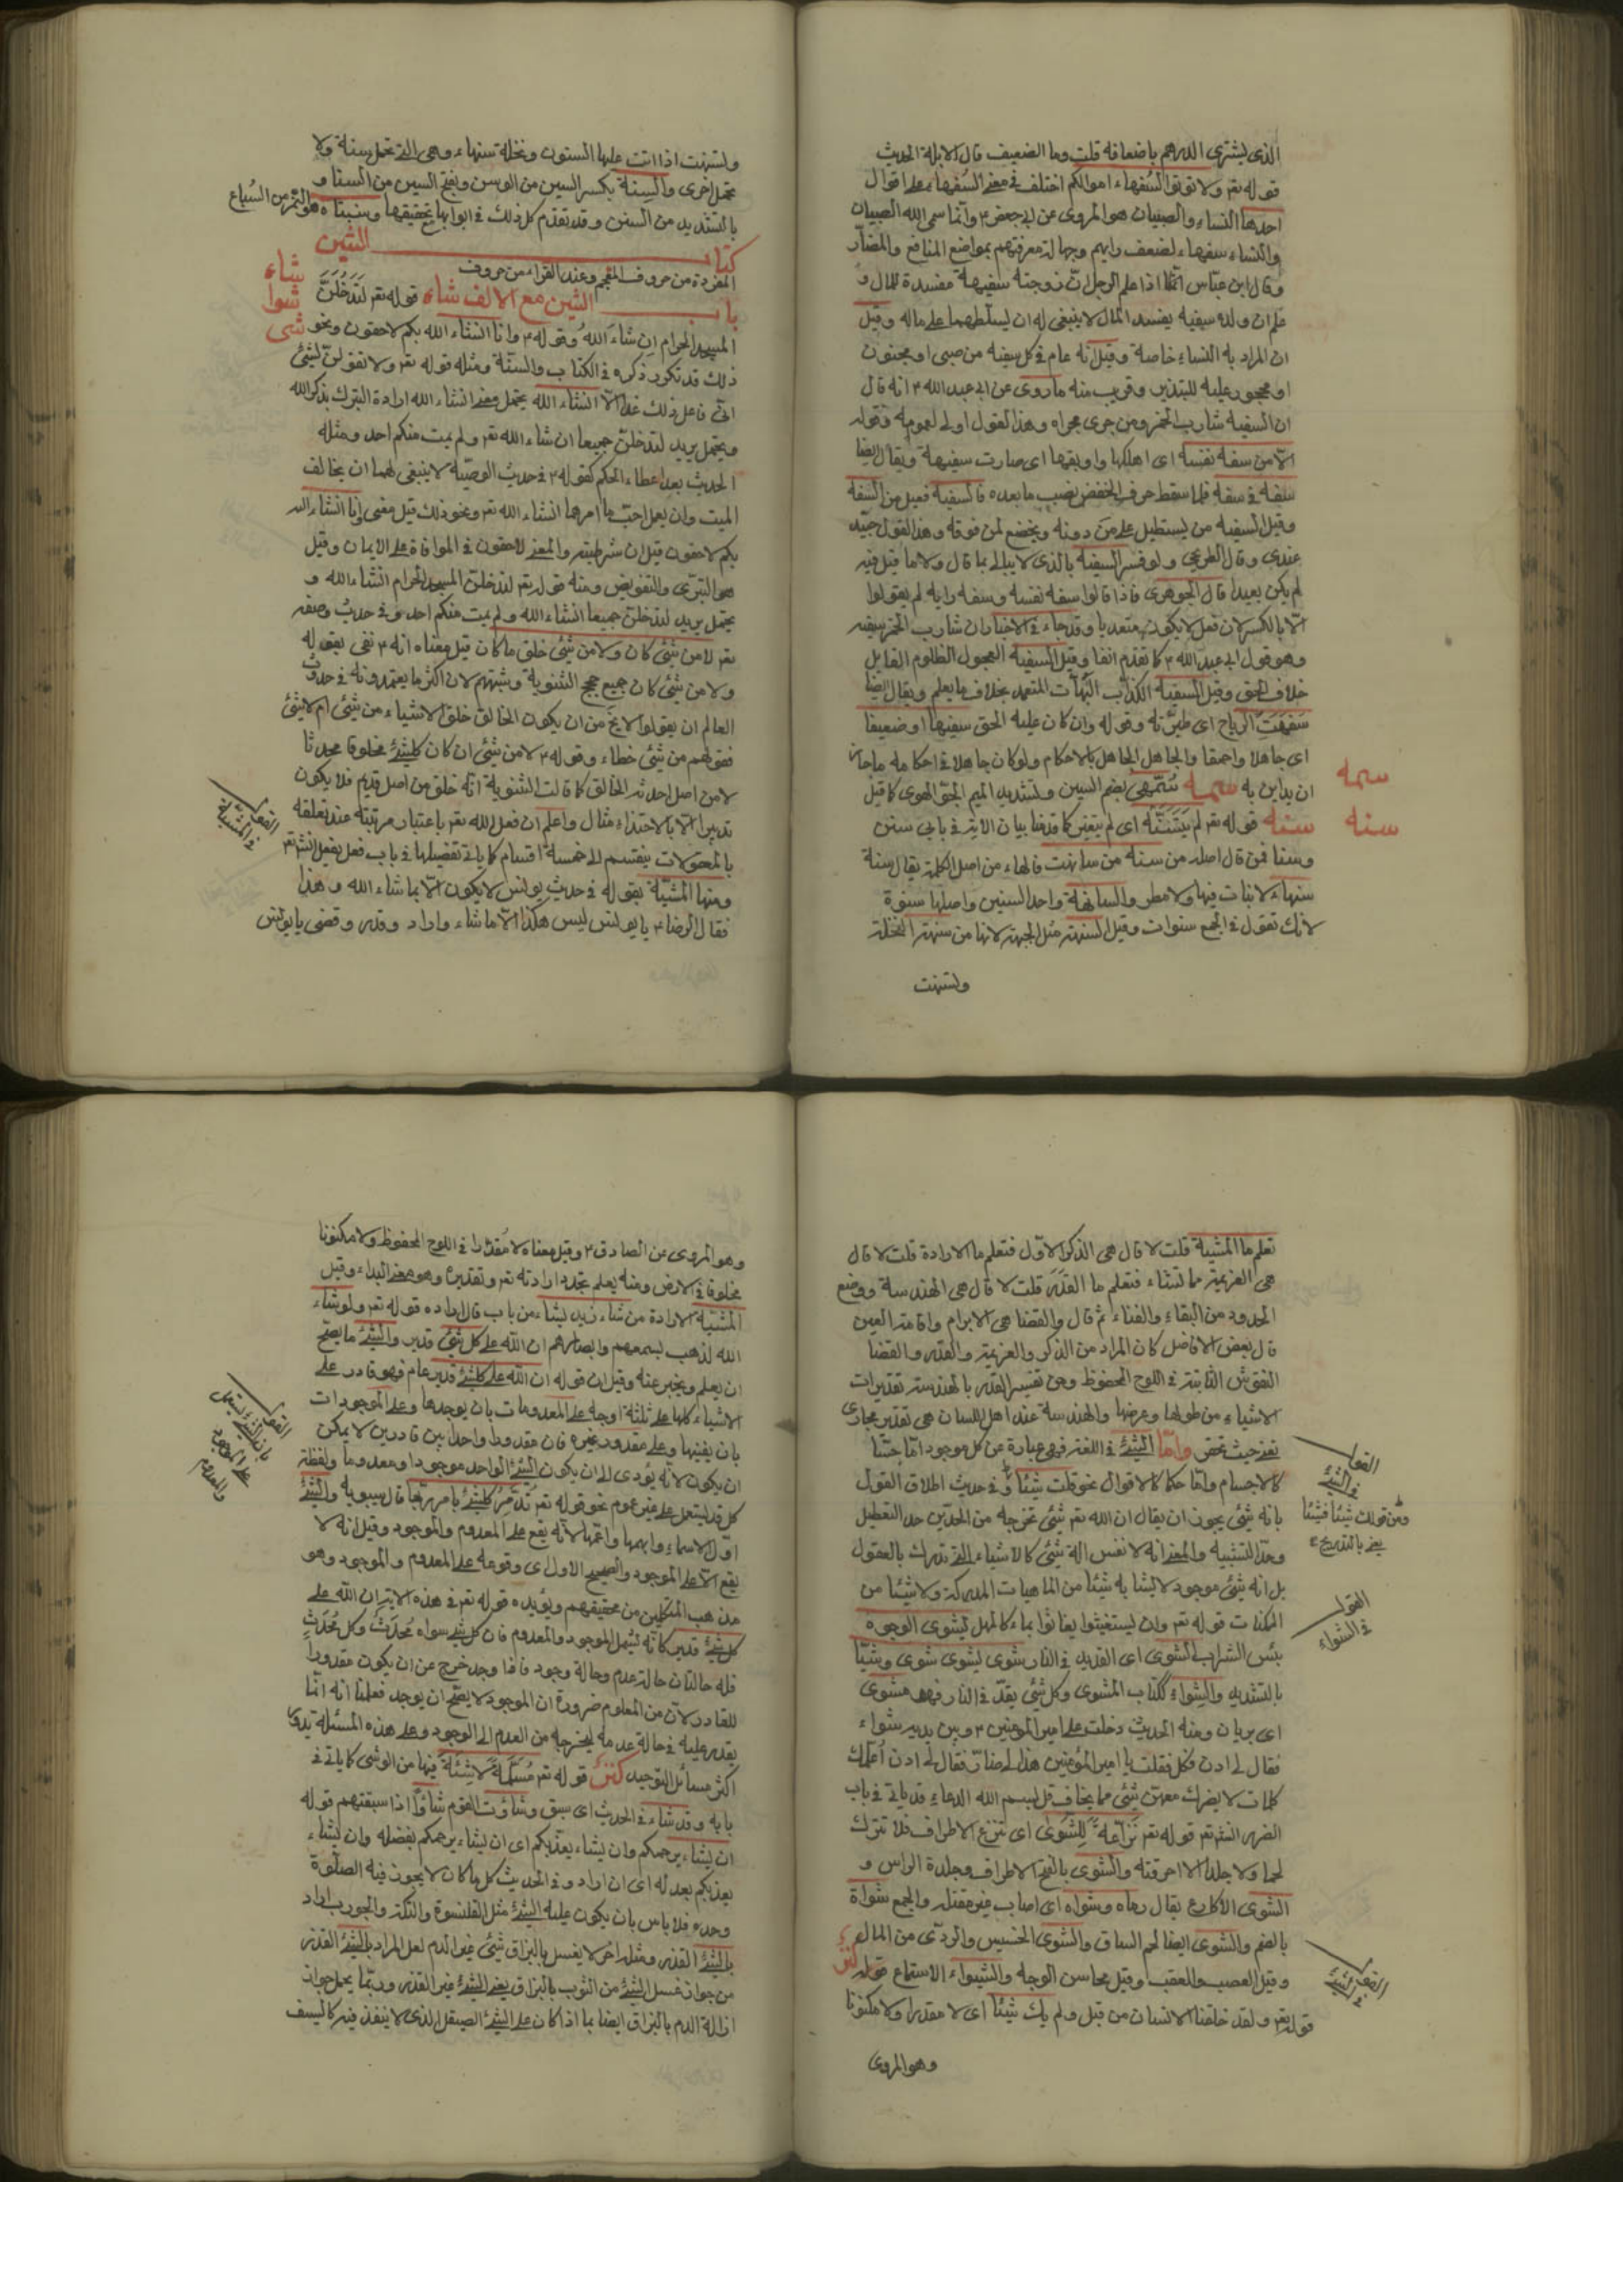 الذى يشترى الدرهم باضعافه قلت وما الضعيف قال الابله الحديث
قوله تعم ولا تؤتوا السفهاء اموالكم اختلف فى معنى السفهاء على اقوال
احدها النساء والصبيان هو المروى عن ابى جعفر ع وانما سمى الله الصبيان
والنساء سفهاء لضعف رايهم وجهالة معرفتهم بمواضع المنافع والمضار
وقال ابن عباس انما اذا علم الرجل ان زوجته سفيهة مفسدة للمال و
علم ان ولده سفيه يفسد المال لا ينبغى له ان يسلطهما على ماله وقيل
ان المراد به النساء خاصة وقيل انه عام فى كل سفيه من صبى او مجنون
او محجور عليه للتبذير وقريب منه ما روى عن ابى عبد الله ع انه قال
ان السفيه شارب الخمر ومن جرى مجراه وهذا القول اولى لعمومه وقوله
الا من سفه نفسه اى اهلكها واوبقها اى صارت سفيهة ويقال ايضا
سفه فى سفه فلما سقط حرف الخفض نصب ما بعده فالسفيه فعيل من السفه
وقيل السفيه من يستطيل على من دونه ويخضع لمن فوقه وهذا القول جيد
عندى وقال الطريحى ولو فسر السفيه بالذى لا يبالى بما قال ولا ما قيل فيه
لم يكن بعيدا قال الجوهرى فاذا قالوا سفه نفسه وسفه رايه لم يقولوا
الا بالكسر لان فعل لا يكون متعديا وقد جاء فى الاخبار ان شارب الخمر سفيه
وهو قول ابى عبد الله ع كما تقدم انفا وقيل السفيه العجول الظلوم القابل
خلاف الحق وقيل السفيه الكذاب البهات المتعمد بخلاف ما يعلم ويقال ايضا
سفهت الرياح اى طيرته وقوله وان كان عليه الحق سفيها او ضعيفا
اى جاهلا واحمقا والجاهل الجاهل بالاحكام ولو كان جاهلا فى احكامه ما جاز
ان يداين به سمه سمهى بضم السين وتشديد الميم الجو الهوى كما قيل
سمه
سنه قوله تعم لم يتسنه اى لم يتغير كما قدمنا بيان الاية فى بابى سنن
سنه
وسنا فمن قال اصله من سنه من سانهت فالهاء من اصل الكلمة يقال سنة
سنهاء لا نبات فيها ولا مطر والسانهة واحد السنين واصلها سنوة
لانك تقول فى الجمع سنوات وقيل السنهة مثل الجبهة لانها من سنهت النخلة
وتسنهت
وتسنهت اذا اتت عليها السنون ونخلة سنهاء وهى التى تحمل سنة ولا
تحمل اخرى والسنة بكسر السين من الوسن وبفتح السين من السنا و
بالتشديد من السنن وقد تقدم كل ذلك فى ابوابها بتحقيقها
كتاب الشين
المفردة من حروف المعجم وعند القراء من حروف
باب الشين مع الالف شاء قوله تعم لتدخلن
شاء
شوا
شىء
المسجد الحرام ان شاء الله وقوله ع وانا انشاء الله بكم لاحقون ونحو
ذلك قد تكرر ذكره فى الكتاب والسنة ومثله قوله تعم ولا تقولن لشئ
انى فاعل ذلك غدا الا انشاء الله يحتمل معنى انشاء الله ارادة التبرك بذكر الله
ويحتمل يريد لتدخلن جميعا ان شاء الله تعم ولم يمت منكم احد ومثله
الحديث بعد اعطاء الحكم كقوله ع فى حديث الوصية لا ينبغى لهما ان يخالف
الميت وان يعمل احب ما امرهما انشاء الله تعم ونحو ذلك قيل معنى وانا انشاء الله
بكم لاحقون قيل ان شرطية والمعنى لاحقون فى الموافاة على الايمان وقيل
هو التبرى والتفويض ومنه قوله تعم لتدخلن المسجد الحرام انشاء الله و
يحتمل يريد لتدخلن جميعا انشاء الله ولم يمت منكم احد وفى حديث وصفه
تعم لا من شئ كان ولا من شئ خلق ما كان قيل معناه انه ع نفى بقوله
ولا من شئ كان جميع حجج الثنوية وشبههم لان اكثر ما يعتمدونه فى حدوث
العالم ان يقولوا لا يخ من ان يكون الخالق خلق الاشياء من شئ ام لا شئ
فقولهم من شئ خطاء وقوله ع لا من شئ ان كان كلشئ مخلوقا محدثا
لا من اصل احدثه الخالق كما قالت الثنوية انه خلق من اصل قديم فلا يكون
تدبيرا الا بالاحتذاء مثال واعلم ان فعل الله تعم باعتبار مرتبته عند تعلقه
القول
فى المشية
بالمحولات ينقسم الى خمسة اقسام كما ياتى تفصيلها فى باب فعل
ومنها المشية بقوله فى حديث يونس لا يكون الا بما شاء الله وهذا
فقال الرضا ع يا يونس ليس هكذا الا ما شاء واراد وقدر وقضى يا يونس
تعلم ما المشية قلت لا قال هى الذكر الاول فتعلم ما الارادة قلت لا قال
هى العزيمة مما تشاء فتعلم ما القدر قلت لا قال هى الهندسة ووضع
الحدود من البقاء والفناء ثم قال والقضا هى الابرام واقامة العين
قال بعض الافاضل كان المراد من الذكر والعزيمة والقدر والقضا
النقوش الثابتة فى اللوح المحفوظ وحق تفسير القدر بالهندسة تقديرات
الاشياء من طولها وعرضها والهندسة عند اهل اللسان هى تقدير مجارى
القنى حيث تحفر واما الشئ فى اللغة فهى عبارة عن كل موجود اما حسا
القول
فى الشئ
كالاجسام واما حكما كالاقوال نحو قلت شيئا وفى حديث اطلاق القول
ومن قولك شيئا فشيئا
يعنى بالتدريج
بانه شئ يجوز ان يقال ان الله تعم شئ تخرجه من الحدين حد التعطيل
وحد التشبيه والمعنى انه لا نفس انه شئ كالاشياء التى تدرك بالعقول
بل انه شئ موجود لا يشابه شيئا من الماهيات المدركة ولا شيئا من
الممكنات قوله تعم وان يستغيثوا يغاثوا بماء كالمهل يشوى الوجوه
القول
فى الشواء
بئس الشراب الشوى اى القديد فى النار شوى يشوى شوى وشيا
بالتشديد والشواء ككتاب المشوى وكل شئ يقد فى النار فهو مشوى
اى بريان ومنه الحديث دخلت على امير المؤمنين ع وبين يديه شواء
فقال لى ادن وكل فقلت يا امير المؤمنين هذا لى ضار فقال لى ادن اعلمك
كلمات لا يضرك معهن شئ مما يخاف قل بسم الله الدعاء قد ياتى فى باب
الضرر قوله تعم نزاعة للشوى اى تنزع الاطراف فلا تترك
لحما ولا جلدا الا احرقته والشوى بالفتح الاطراف وجلدة الراس و
الشوى الاكارع يقال رماه وشواه اى اصاب غير مقتله والجمع شواة
بالضم والشوى ايضا لحم الساق والشوى الخسيس والردى من المال
وقيل العصب والعقب وقيل محاسن الوجه والشيواء الاستماع
القول
فى الشئ
قوله تعم ولقد خلقنا الانسان من قبل ولم يك شيئا اى لا مقدرا ولا مكنونا
وهو المروى
وهو المروى عن الصادق ع وقيل معناه لا مقدرا فى اللوح المحفوظ ولا مكنونا
مخلوقا فى الارض ومنه يعلم تجدد ارادته تعم وتقديره وهو معنى البداء وقيل
المشية الارادة من شاء زيد يشاء من باب قال اراده قوله تعم ولو شاء
الله لذهب بسمعهم وابصارهم ان الله على كل شئ قدير والشئ ما يصح
ان يعلم ويخبر عنه وقيل ان قوله ان الله على كلشئ قدير عام فهو قادر على
الاشياء كلها على ثلثة اوجه على المعدومات بان يوجدها وعلى الموجودات
القول
بان الشئ يستعمل
على الموجود
والمعدوم
بان يفنيها وعلى مقدور غيره فان مقدورا واحدا بين قادرين لا يمكن
ان يكون لانه يؤدى الى ان يكون الشئ الواحد موجودا ومعدوما ولفظة
كل قد يستعمل على غير عموم نحو قوله تعم تدمر كلشئ بامر ربها قال سيبويه والشئ
اول الاسماء وابهمها واعمها لانه يقع على المعدوم والموجود وقيل انه لا
يقع الا على الموجود والصحيح الاول اى وقوعه على المعدوم والموجود وهو
مذهب المتكلمين من محققيهم ويؤيده قوله تعم فى هذه الاية ان الله على
كل شئ قدير كانه يشمل الموجود والمعدوم فان كل شئ سواه محدث وكل محدث
فله حالتان حالة عدم وحالة وجود فاذا وجد خرج عن ان يكون مقدورا
للقادر لان من المعلوم ضرورة ان الموجود لا يصح ان يوجد فعلمنا انه انما
يقدر عليه فى حالة عدمه ليخرجه من العدم الى الوجود وعلى هذه المسئلة تدور
اكثر مسائل التوحيد قوله تعم مسلمة لا شية فيها من الوشى كما ياتى فى
بابه وقد شاء فى الحديث اى سبق وشاوت القوم شاوا اذا سبقتهم قوله
ان يشاء يرحمكم وان يشاء يعذبكم اى ان يشاء يرحمكم بفضله وان يشاء
يعذبكم بعدله اى ان اراد وفى الحديث كل ما كان لا يجوز فيه الصلوة
وحده فلا باس بان يكون عليه الشئ مثل القلنسوة والتكة والجورب اراد
بالشئ القذر ومثله اخر لا يغسل بالبزاق شئ غير الدم لعل المراد بالشئ القذر
من جواز غسل الشئ من الثوب بالبزاق يعنى الشئ غير القذر وربما يحمل جواز
ازالة الدم بالبزاق ايضا بما اذا كان على الشئ الصيقل الذى لا ينفذ فيه كالسيف